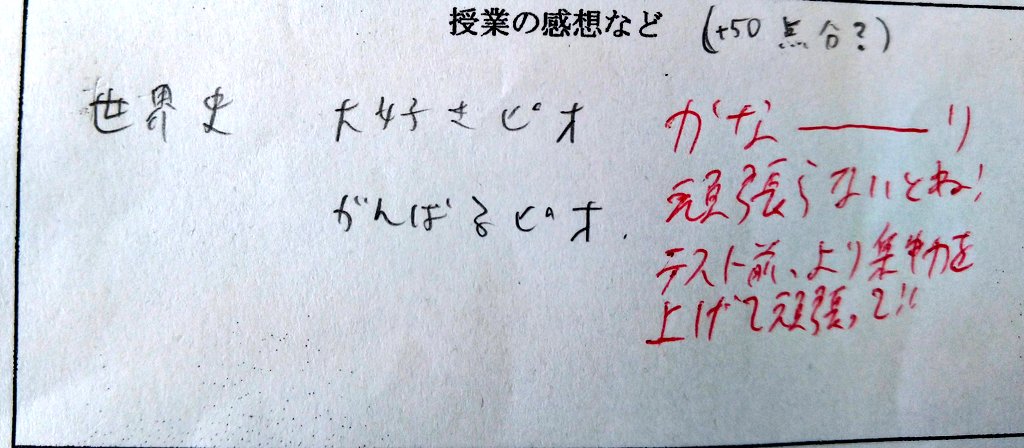 授業の感想など (+50点分?)
世界史 大好きピオ
がんばるピオ.
かな――り
頑張らないとね!
テスト前、より集中力を
上げて頑張って!!